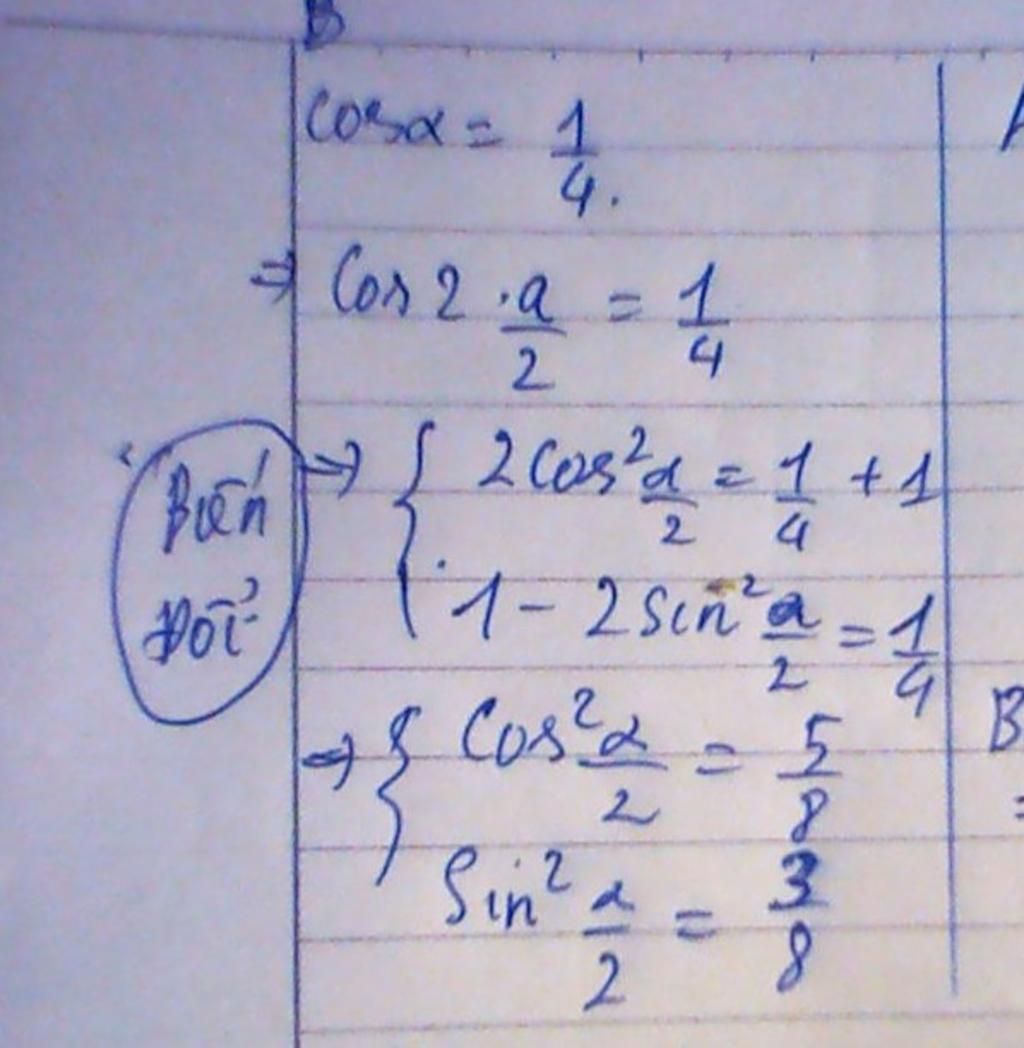 B
cosα = 1/4.
A
⇒ Cos 2 · α/2 = 1/4
Biến
Đổi
⇒ { 2cos² α/2 = 1/4 + 1
1 - 2 sin² α/2 = 1/4
B
⇒ { Cos² α/2 = 5/8
=
Sin² α/2 = 3/8